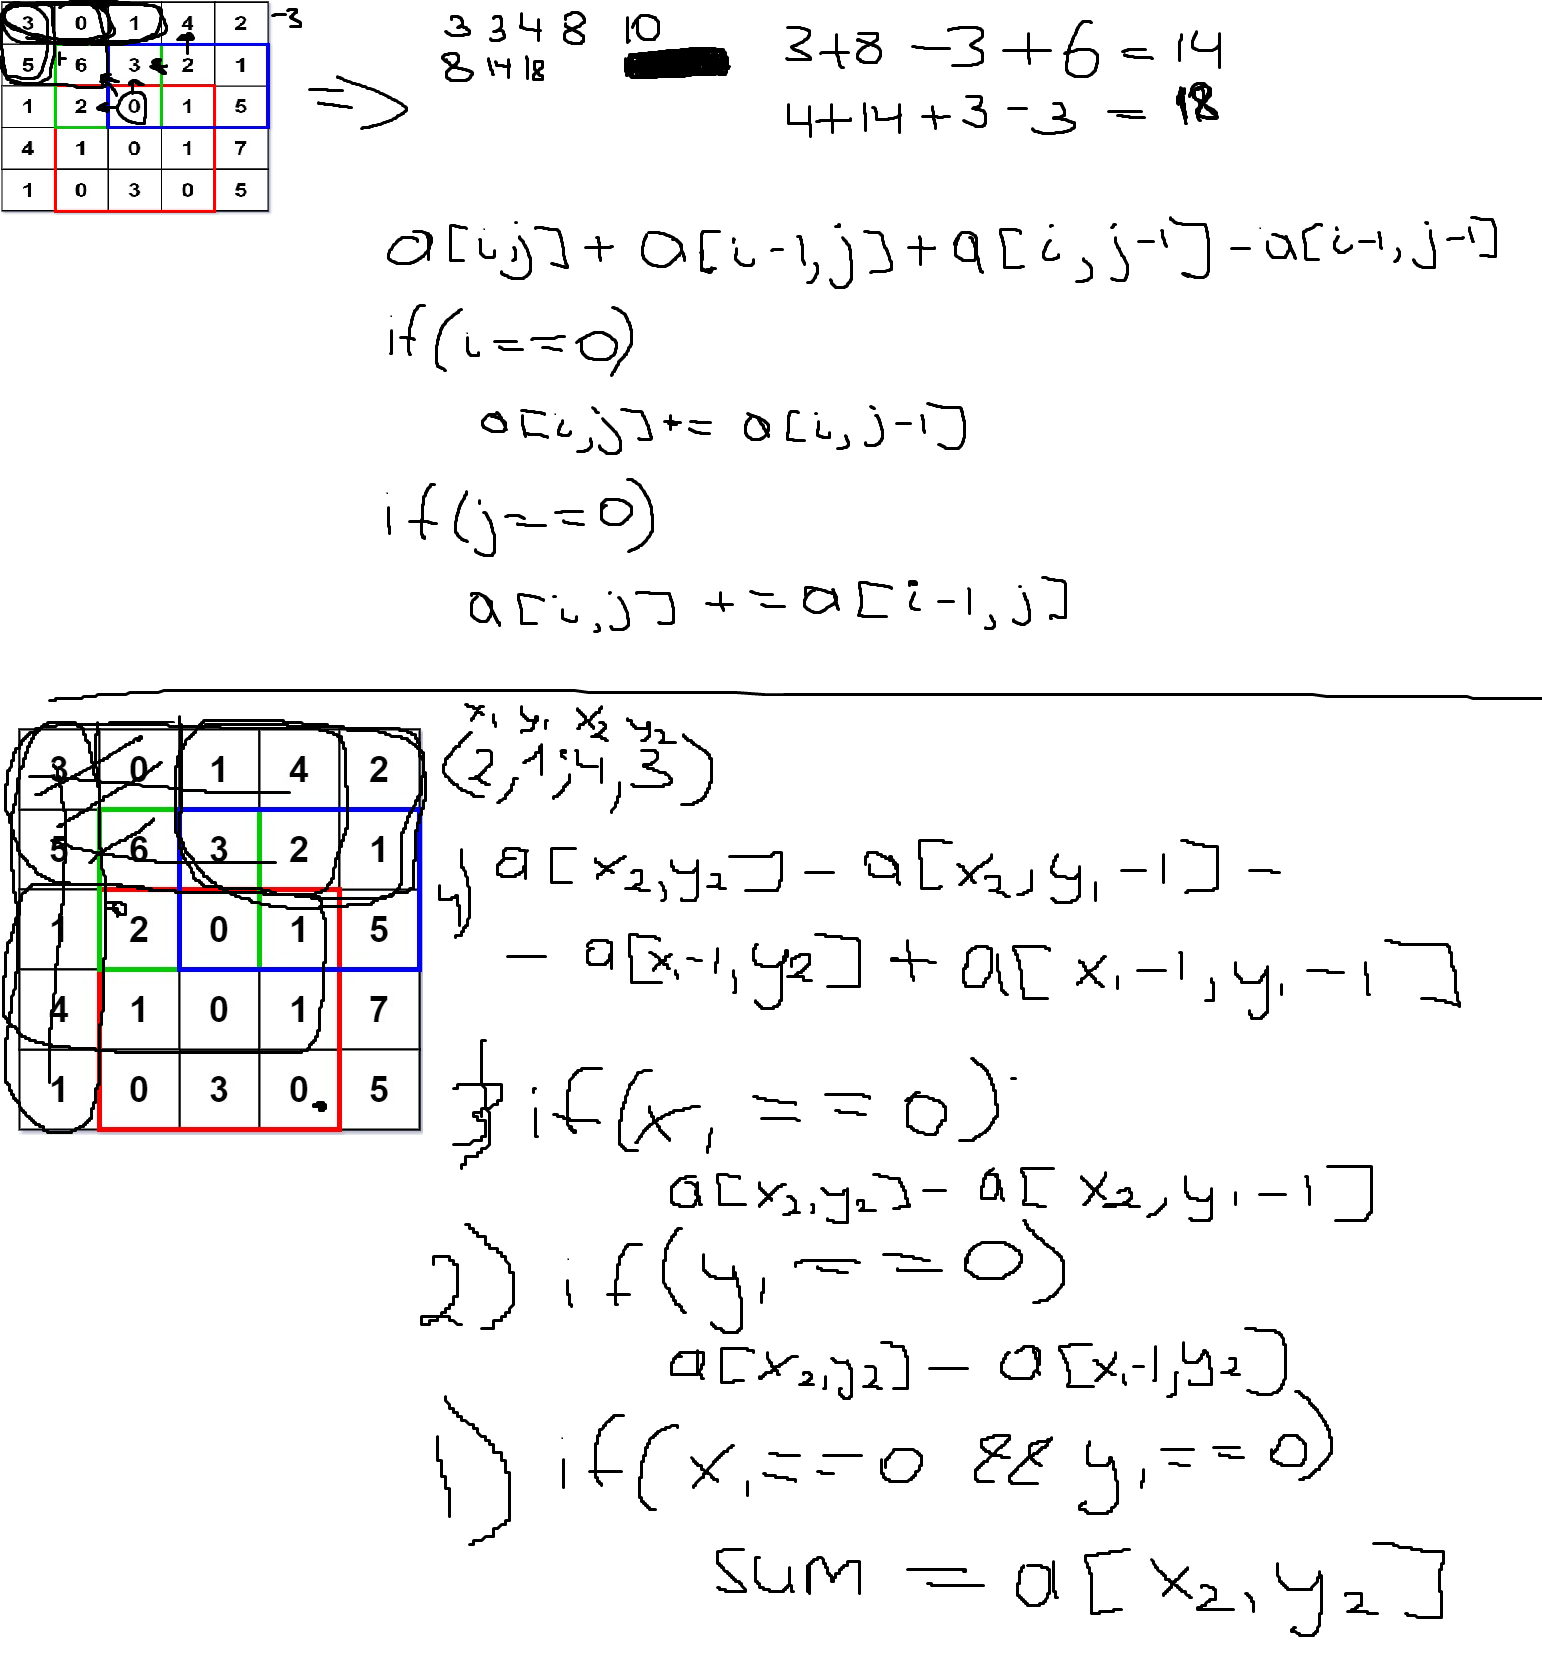 3 0 1 4 2 -3
5 6 3 2 1
1 2 0 1 5
4 1 0 1 7
1 0 3 0 5
3 3 4 8 10
8 14 18
=>
3+8-3+6=14
4+14+3-3=18
a[i,j]+a[i-1,j]+a[i,j-1]-a[i-1,j-1]
if(i==0)
a[i,j]+=a[i,j-1]
if(j==0)
a[i,j]+=a[i-1,j]
3 0 1 4 2
5 6 3 2 1
1 2 0 1 5
4 1 0 1 7
1 0 3 0 5
x₁ y₁ x₂ y₂
(2,1;4,3)
4) a[x₂,y₂]-a[x₂,y₁-1]-
-a[x₁-1,y₂]+a[x₁-1,y₁-1]
3) if(x₁==0)
a[x₂,y₂]-a[x₂,y₁-1]
2) if(y₁==0)
a[x₂,y₂]-a[x₁-1,y₂]
1) if(x₁==0 && y₁==0)
sum=a[x₂,y₂]